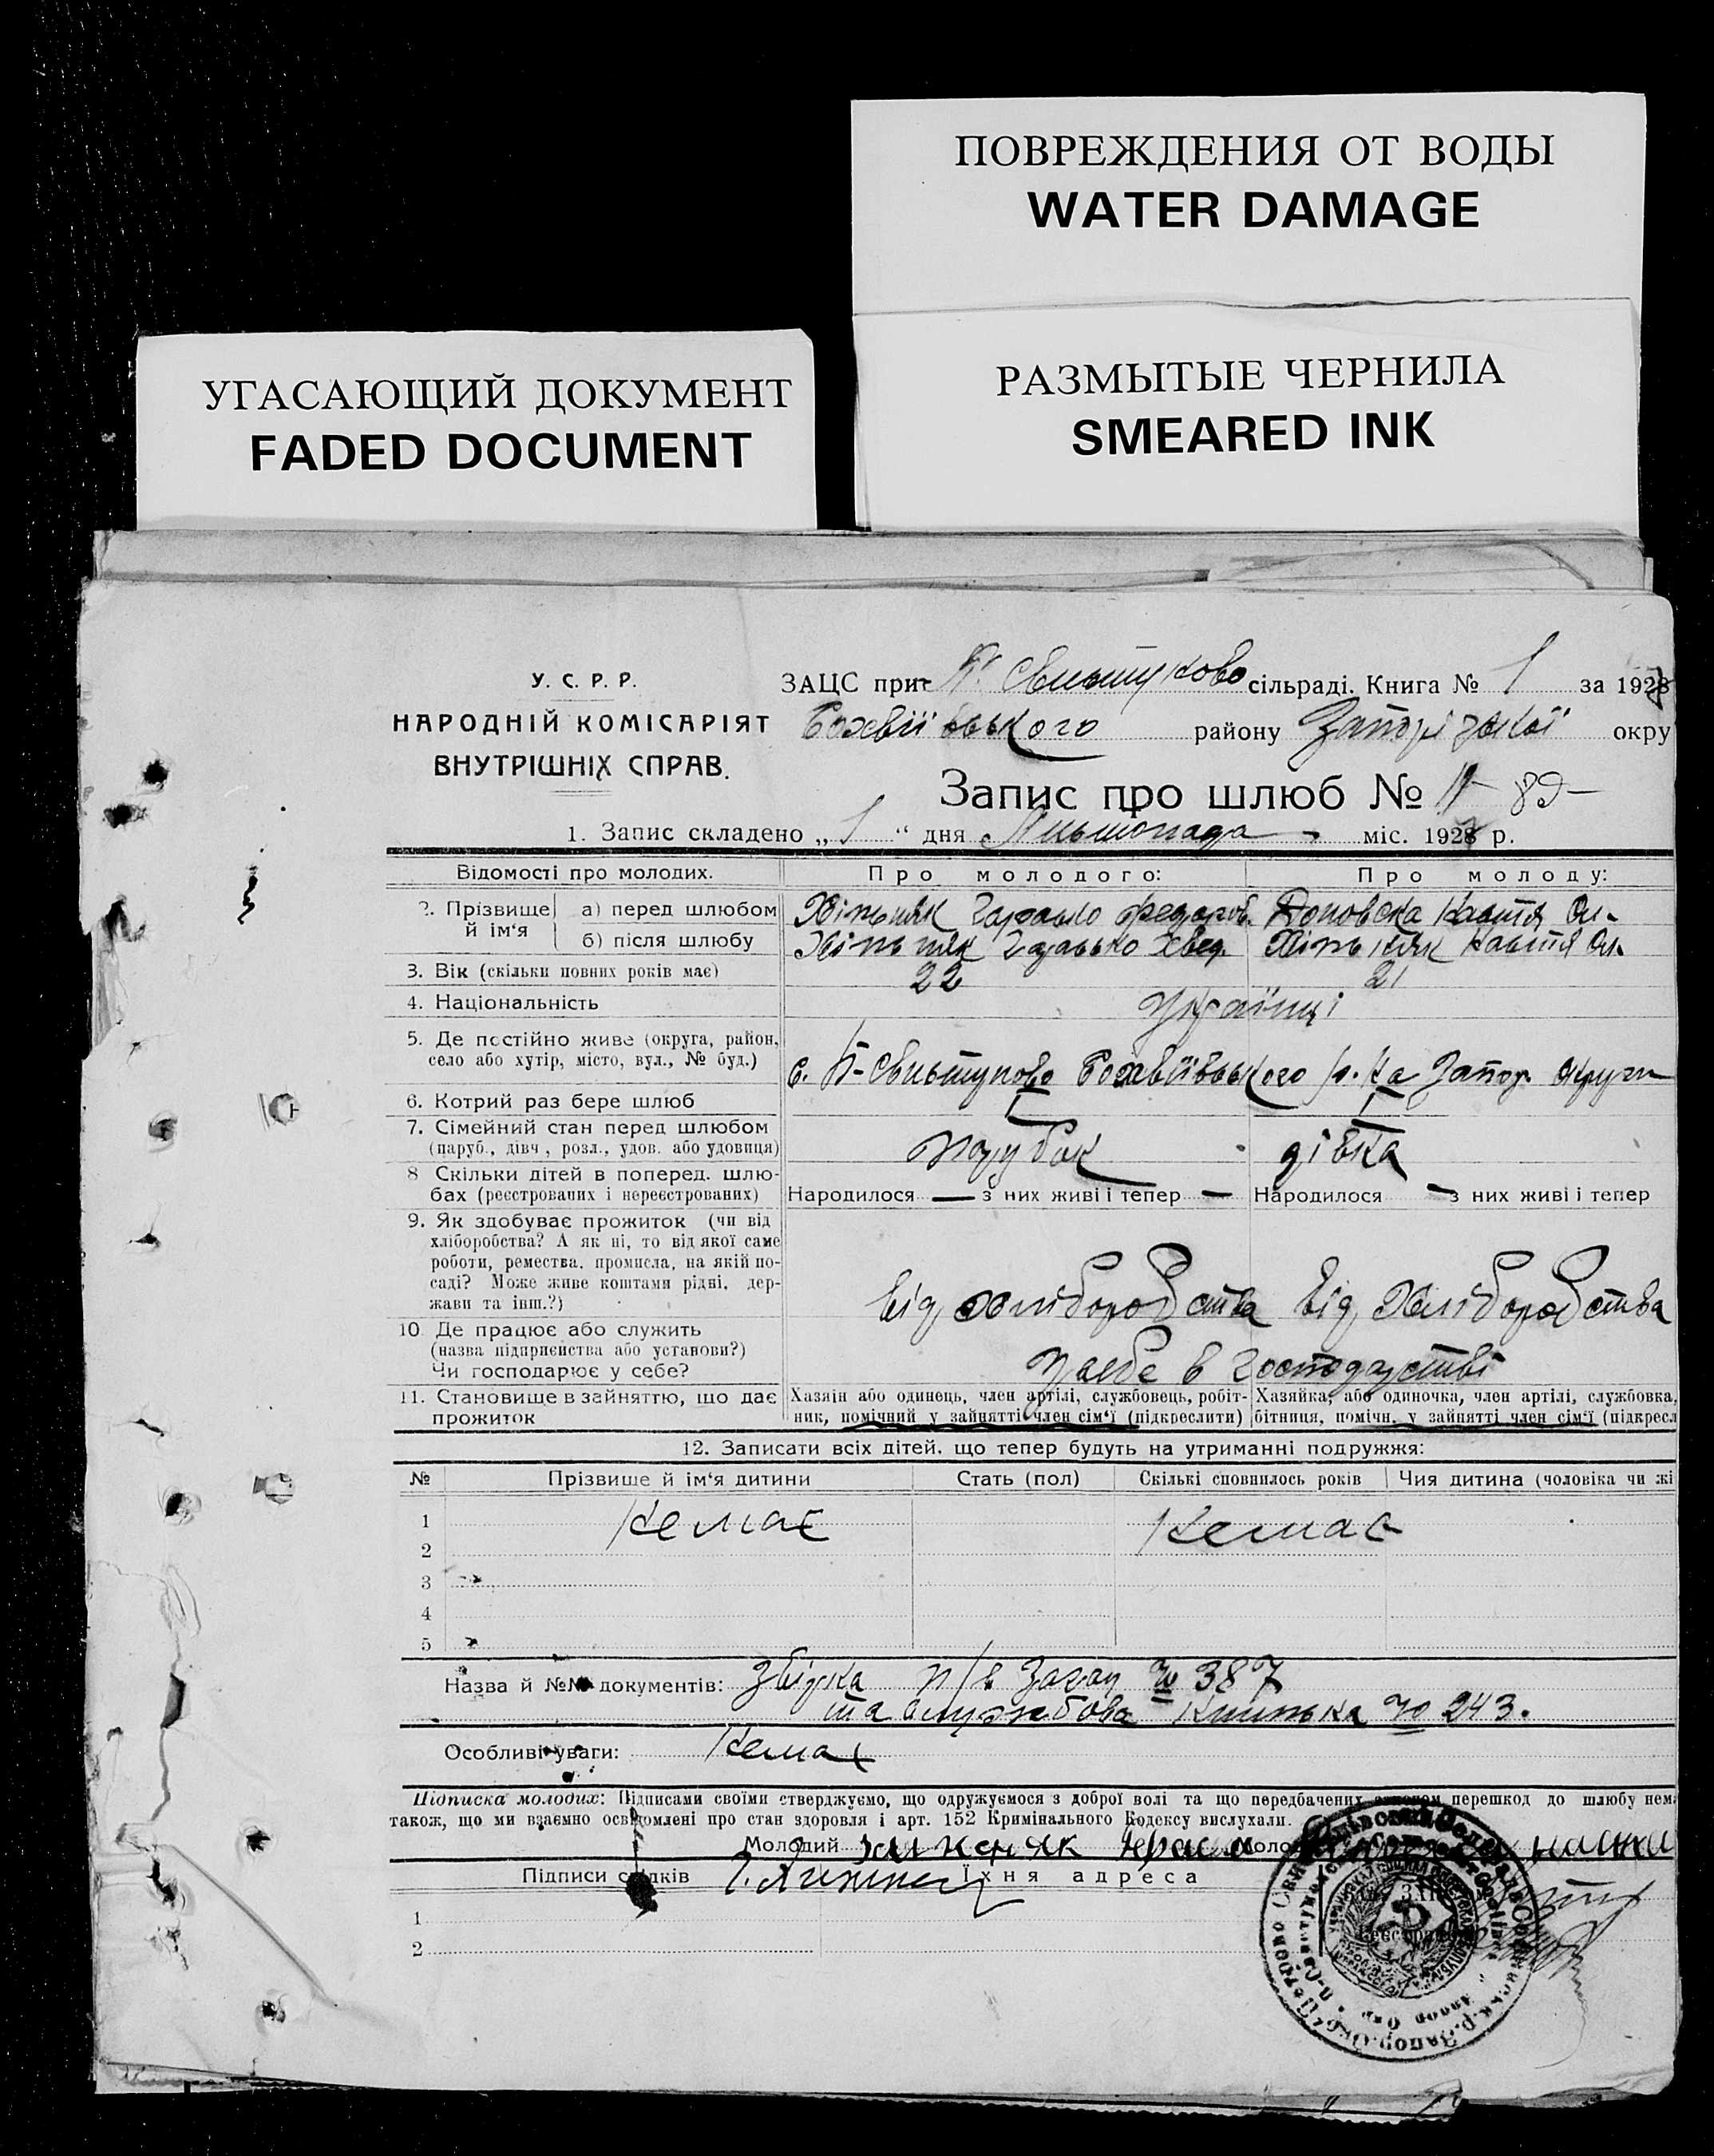 ПОВРЕЖДЕНИЯ ОТ ВОДЫ
WATER DAMAGE
УГАСАЮЩИЙ ДОКУМЕНТ
FADED DOCUMENT
РАЗМЫТЫЕ ЧЕРНИЛА
SMEARED INK
У. С. Р. Р.
НАРОДНІЙ КОМІСАРІЯТ
ВНУТРІШНІХ СПРАВ.
ЗАЦС при П. Свистуково сільраді. Книга № 1 за 1928
району Запорізької окру
Запис про шлюб № 89
1. Запис складено „ 1 “ дня Листопада міс. 1928 р.
Відомості про молодих. Про молодого: Про молоду:
2. Прізвище й ім‘я а) перед шлюбом
б) після шлюбу
3. Вік (скільки повних років має) 22 21
4. Національність Українці
5. Де постійно живе (округа, район,
село або хутір, місто, вул., № буд.) с. П-Свистуново Запор. округи
6. Котрий раз бере шлюб I I
7. Сімейний стан перед шлюбом
(паруб., дівч, розл., удов. або удовиця) парубок дівка
8 Скільки дітей в поперед. шлю-
бах (реєстрованих і нереєстрованих) Народилося — з них живі і тепер — Народилося — з них живі і тепер
9. Як здобуває прожиток (чи від
хліборобства? А як ні, то від якої саме
роботи, ремества, промисла, на якій по-
саді? Може живе коштами рідні, дер-
жави та інш.?) від хліборобства від хліборобства
10. Де працює або служить
(назва підприємства або установи?)
Чи господарює у себе? у себе в господарстві
11. Становище в зайняттю, що дає
прожиток
Хазяін або одинець, член артілі, службовець, робіт-
ник, помічний у зайнятті член сім‘ї (підкреслити)
Хазяйка, або одиночка, член артілі, службовка,
бітниця, помічн. у зайнятті член сім‘ї (підкресл
12. Записати всіх дітей, що тепер будуть на утриманні подружжя:
№ Прізвище й ім‘я дитини Стать (пол) Скількі сповнилось років Чия дитина (чоловіка чи жі
1 Немає Немає
2
3
4
5
Назва й №№ документів: Збірка п/в Загону № 387
та службова книжка № 243.
Особливі уваги: Немає
Підписка молодих: Підписами своїми стверджуємо, що одружуємося з доброї волі та що передбачених законом перешкод до шлюбу нема
також, що ми взаємно освідомлені про стан здоровля і арт. 152 Кримінального Кодексу вислухали.
Молодий
Підписи свідків їхня адреса
1
2